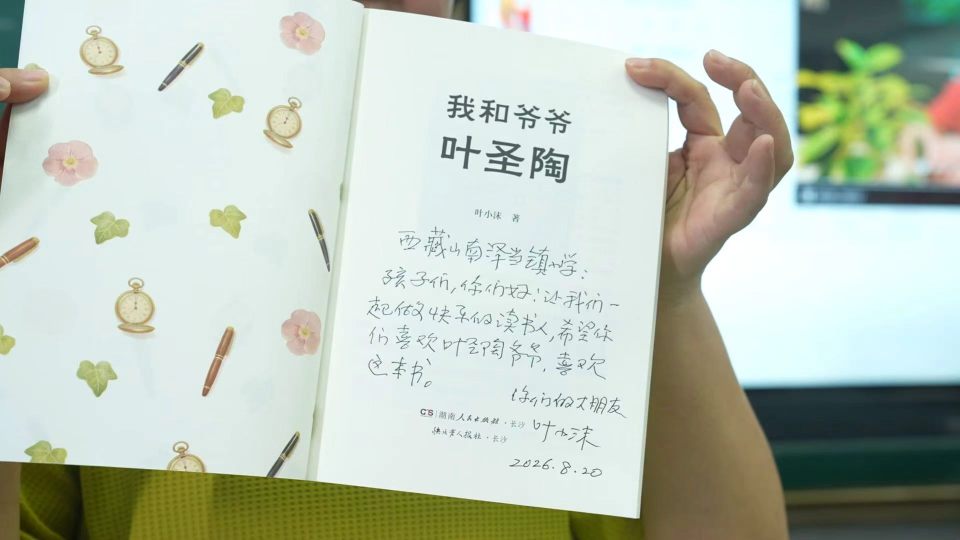 我和爷爷
叶圣陶
叶小沫 著
西藏山南泽当镇小学:
孩子们,你们好!让我们一
起做快乐的读书人,希望你
们喜欢叶圣陶爷爷,喜欢
这本书。
你们的大朋友
叶小沫
2026.8.20
CS 湖南人民出版社·长沙